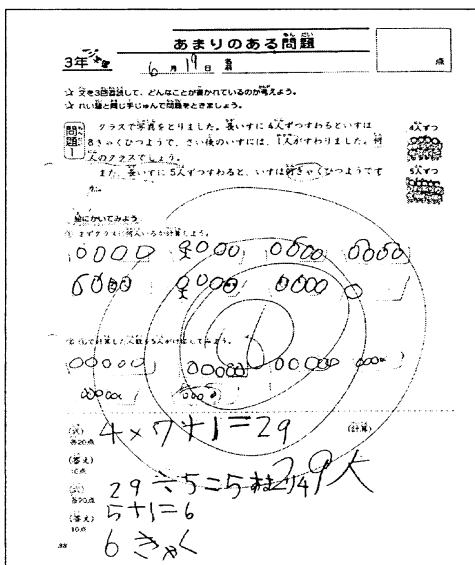 あまりのある問題
3年
6月19日
点
☆ 文を3回音読して、どんなことが書かれているのか考えよう。
☆ れい題と同じ手じゅんで問題をときましょう。
問題1
クラスで写真をとりました。長いすに4人ずつすわるといすは
8きゃくひつようで、さい後のいすには、1人がすわりました。何
人のクラスでしょう。
また、長いすに5人ずつすわると、いすは何きゃくひつようです
か。
4人ずつ
5人ずつ
絵にかいてみよう
① まずクラスに何人いるか計算しよう。
(式)
各20点
4×7+1=29
(計算)
(答え)
10点
29人
(式)
各20点
29÷5=5あまり4
5+1=6
(答え)
10点
6きゃく
38